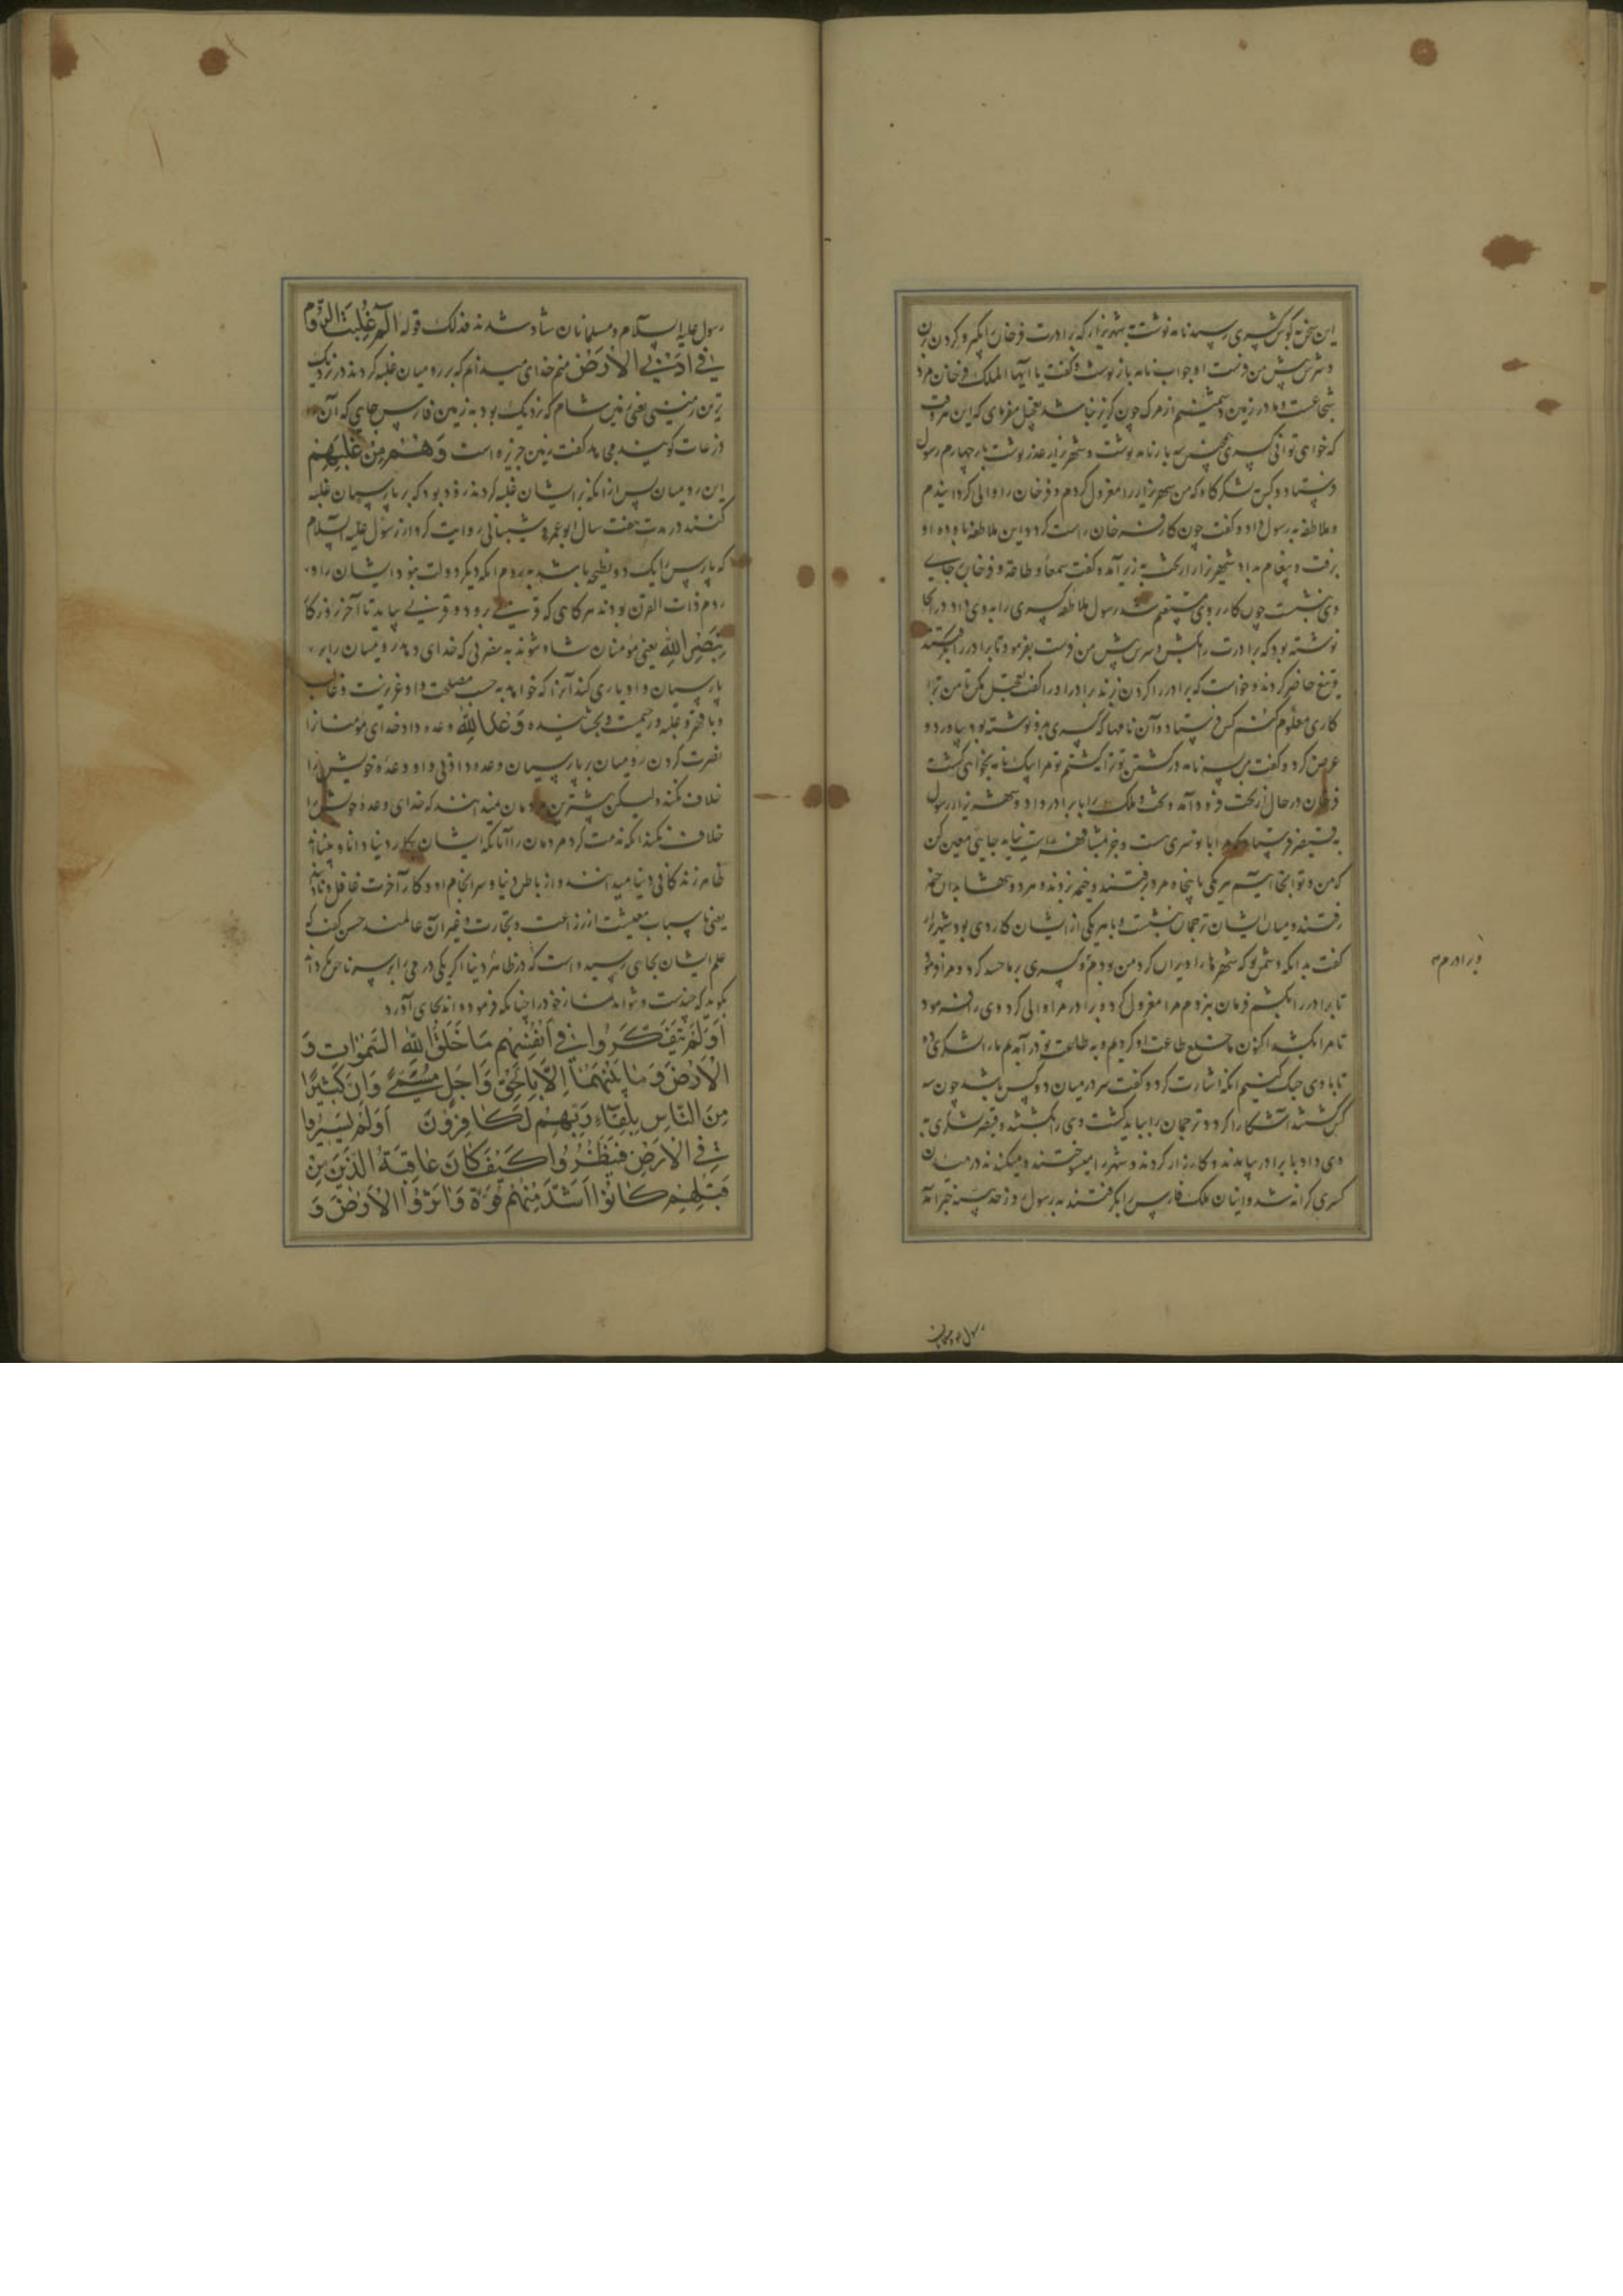 این سخن به گوش کسری رسید نامه نوشت به شهریزار که برادرت فرخان را بگیر و گردن بزن
و سرش پیش من فرست او جواب نامه باز نوشت و گفت یا ایها الملک فرخان مرد
شجاعست و ما در زمین دشمنیم از مرک
که خواهی توانی کسری همچنین سه بار نامه نوشت و شهریزار عذر نوشت بار چهارم رسول
فرستاد و کس به لشکرگاه که من شهریزار را معزول کردم و فرخان را والی گردانیدم
و ملاطفه به رسول داد و گفت چون کار فرخان راست گردد این ملاطفه باو ده او
برفت و پیغام بداد شهریزار از تخت به زیر آمد و گفت سمعا و طاعة و فرخان بجای
وی بنشست چون کار بر وی مستقیم شد رسول ملاطفه کسری را به وی داد در آنجا
نوشته بود که برادرت را بکش و سرش پیش من فرست بفرمود تا برادر را بگرفتند
و تیغ حاضر کردند و خواست که برادر را گردن زند برادر او را گفت تعجیل مکن تا من ترا
کاری معلوم کنم کس فرستاد و آن نامها که کسری بدو نوشته بود بیاورد و
عرض کرد و گفت من سه نامه در کشتن تو نکشتم تو مرا بیک نامه بخواهی کشت
فرخان در حال از تخت فرود آمد و تخت و ملک را با برادر داد و شهریزار رسول
به قیصر فرستاد که مرا با تو سری است و جز بمشافهه راست نیاید جائی معین کن
که من و تو آنجا آییم هر یکی با پنجاه مرد برفتند و خیمه بزدند و هر دو تنها بدان خیمه
رفتند و میان ایشان ترجمان بنشست و با هر یکی از ایشان کاردی بود شهریزار
گفت بدانکه دشمن تو که شهرها را ویران کرد من بودم و کسری بر ما حسد کرد و مرا فرمود
تا برادر را بکشم فرمان نبردم مرا معزول کرد و برادر مرا والی کرد وی را فرمود
تا مرا بکشد اکنون ما خلع طاعت او کردیم و به طاعت تو در آمدیم ما را لشکری ده
تا با وی جنک کنیم آنکه اشارت کرد و گفت سر در میان دو کس باشد چون سه
کس شدند آشکارا گردد ترجمان را بباید کشت وی را بکشتند و قیصر لشکری به
وی داد با برادر بیامدند و کارزار کردند و شهر را میسوختند و میکندند
کسری کرانه شد و اینان ملک فارس را بگرفتند به رسول روز حدیبیه خبر آمد
و برادرم
رسول علیه السلام و مسلمانان شاد شدند فذلک قوله الم غلبت الروم
فی ادنی الارض منم خدای میدانم که بر رومیان غلبه کردند در نزدیک
ترین زمینی یعنی زمین شام که نزدیک بود به زمین فارس جای که آن
اذرعات گویند مجاهد گفت زمین جزیره است وَهُم مِن غَلَبِهِم
این رومیان پس از آنکه بر ایشان غلبه کردند زود بود که بر پارسیان غلبه
کنند در مدت هفت سال ابو عمرو شیبانی روایت کرد از رسول علیه السلام
که پارس را یک دو نطحه باشد به روم آنکه دیگر دولت نبود ایشان را و
روم ذات القرن بودند هرگاهی که قرنی برود و قرنی بیاید تا آخر روزگار
بِنَصرِ اللهِ یعنی مؤمنان شاد شوند به نصرتی که خدای دهد رومیان را بر
پارسیان و او یاری کند آنرا که خواهد به حسب مصلحت و او عزیزست و غالب
و با قهر و غلبه و رحمت و بخشاینده وَعدَ اللهِ وعده داد خدای مؤمنانرا
نصرت کردن رومیان بر پارسیان وعده دادنی و او وعده خویش را
خلاف نکند ولیکن بیشترین مردمان نمیدانند که خدای وعده خویش را
خلاف نکند آنکه مذمت کرد مردمان را آنانکه ایشان بکار دنیا دانا و بینااند
ظاهر زندگانی دنیا میدانند و از باطن دنیا و سرانجام او و کار آخرت غافل و نادانند
یعنی باسباب معیشت از زراعت و تجارت و غیر آن عالمند حسن گفت که
علم ایشان بجایی رسیده است که در ظاهر دنیا اگر یکی درمی بر سر ناخن گرداند
بگوید که چندست و نتواند نماز خود را چنانکه فرموده اند بجای آورد
اَوَلَم یَتَفَکَّرُوا فی اَنفُسِهِم مَا خَلَقَ اللهُ السَّمٰوَاتِ وَ
الاَرضَ وَمَا بَینَهُمَا اِلَّا بِالحَقِّ وَاَجَلٍ مُسَمًّی وَاِنَّ کَثِیرًا
مِنَ النَّاسِ بِلِقَاءِ رَبِّهِم لَکَافِرُونَ اَوَلَم یَسِیرُوا
فِی الاَرضِ فَیَنظُرُوا کَیفَ کَانَ عَاقِبَةُ الَّذِینَ مِن
قَبلِهِم کَانُوا اَشَدَّ مِنهُم قُوَّةً وَاَثَارُوا الاَرضَ وَ